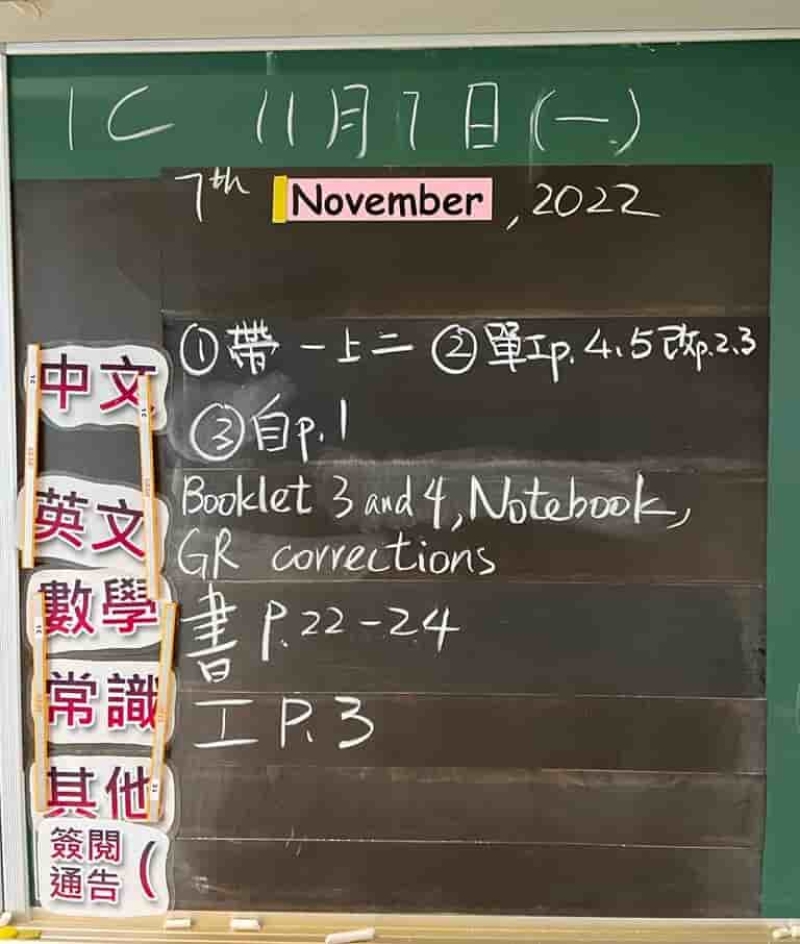 1C 11月7日(一)
7th November, 2022
中文 ①帶一上二 ②單工p.4、5改p.2、3
③自p.1
英文 Booklet 3 and 4, Notebook,
GR corrections
數學 書 P.22-24
常識 工 P.3
其他
簽閱
通告 (